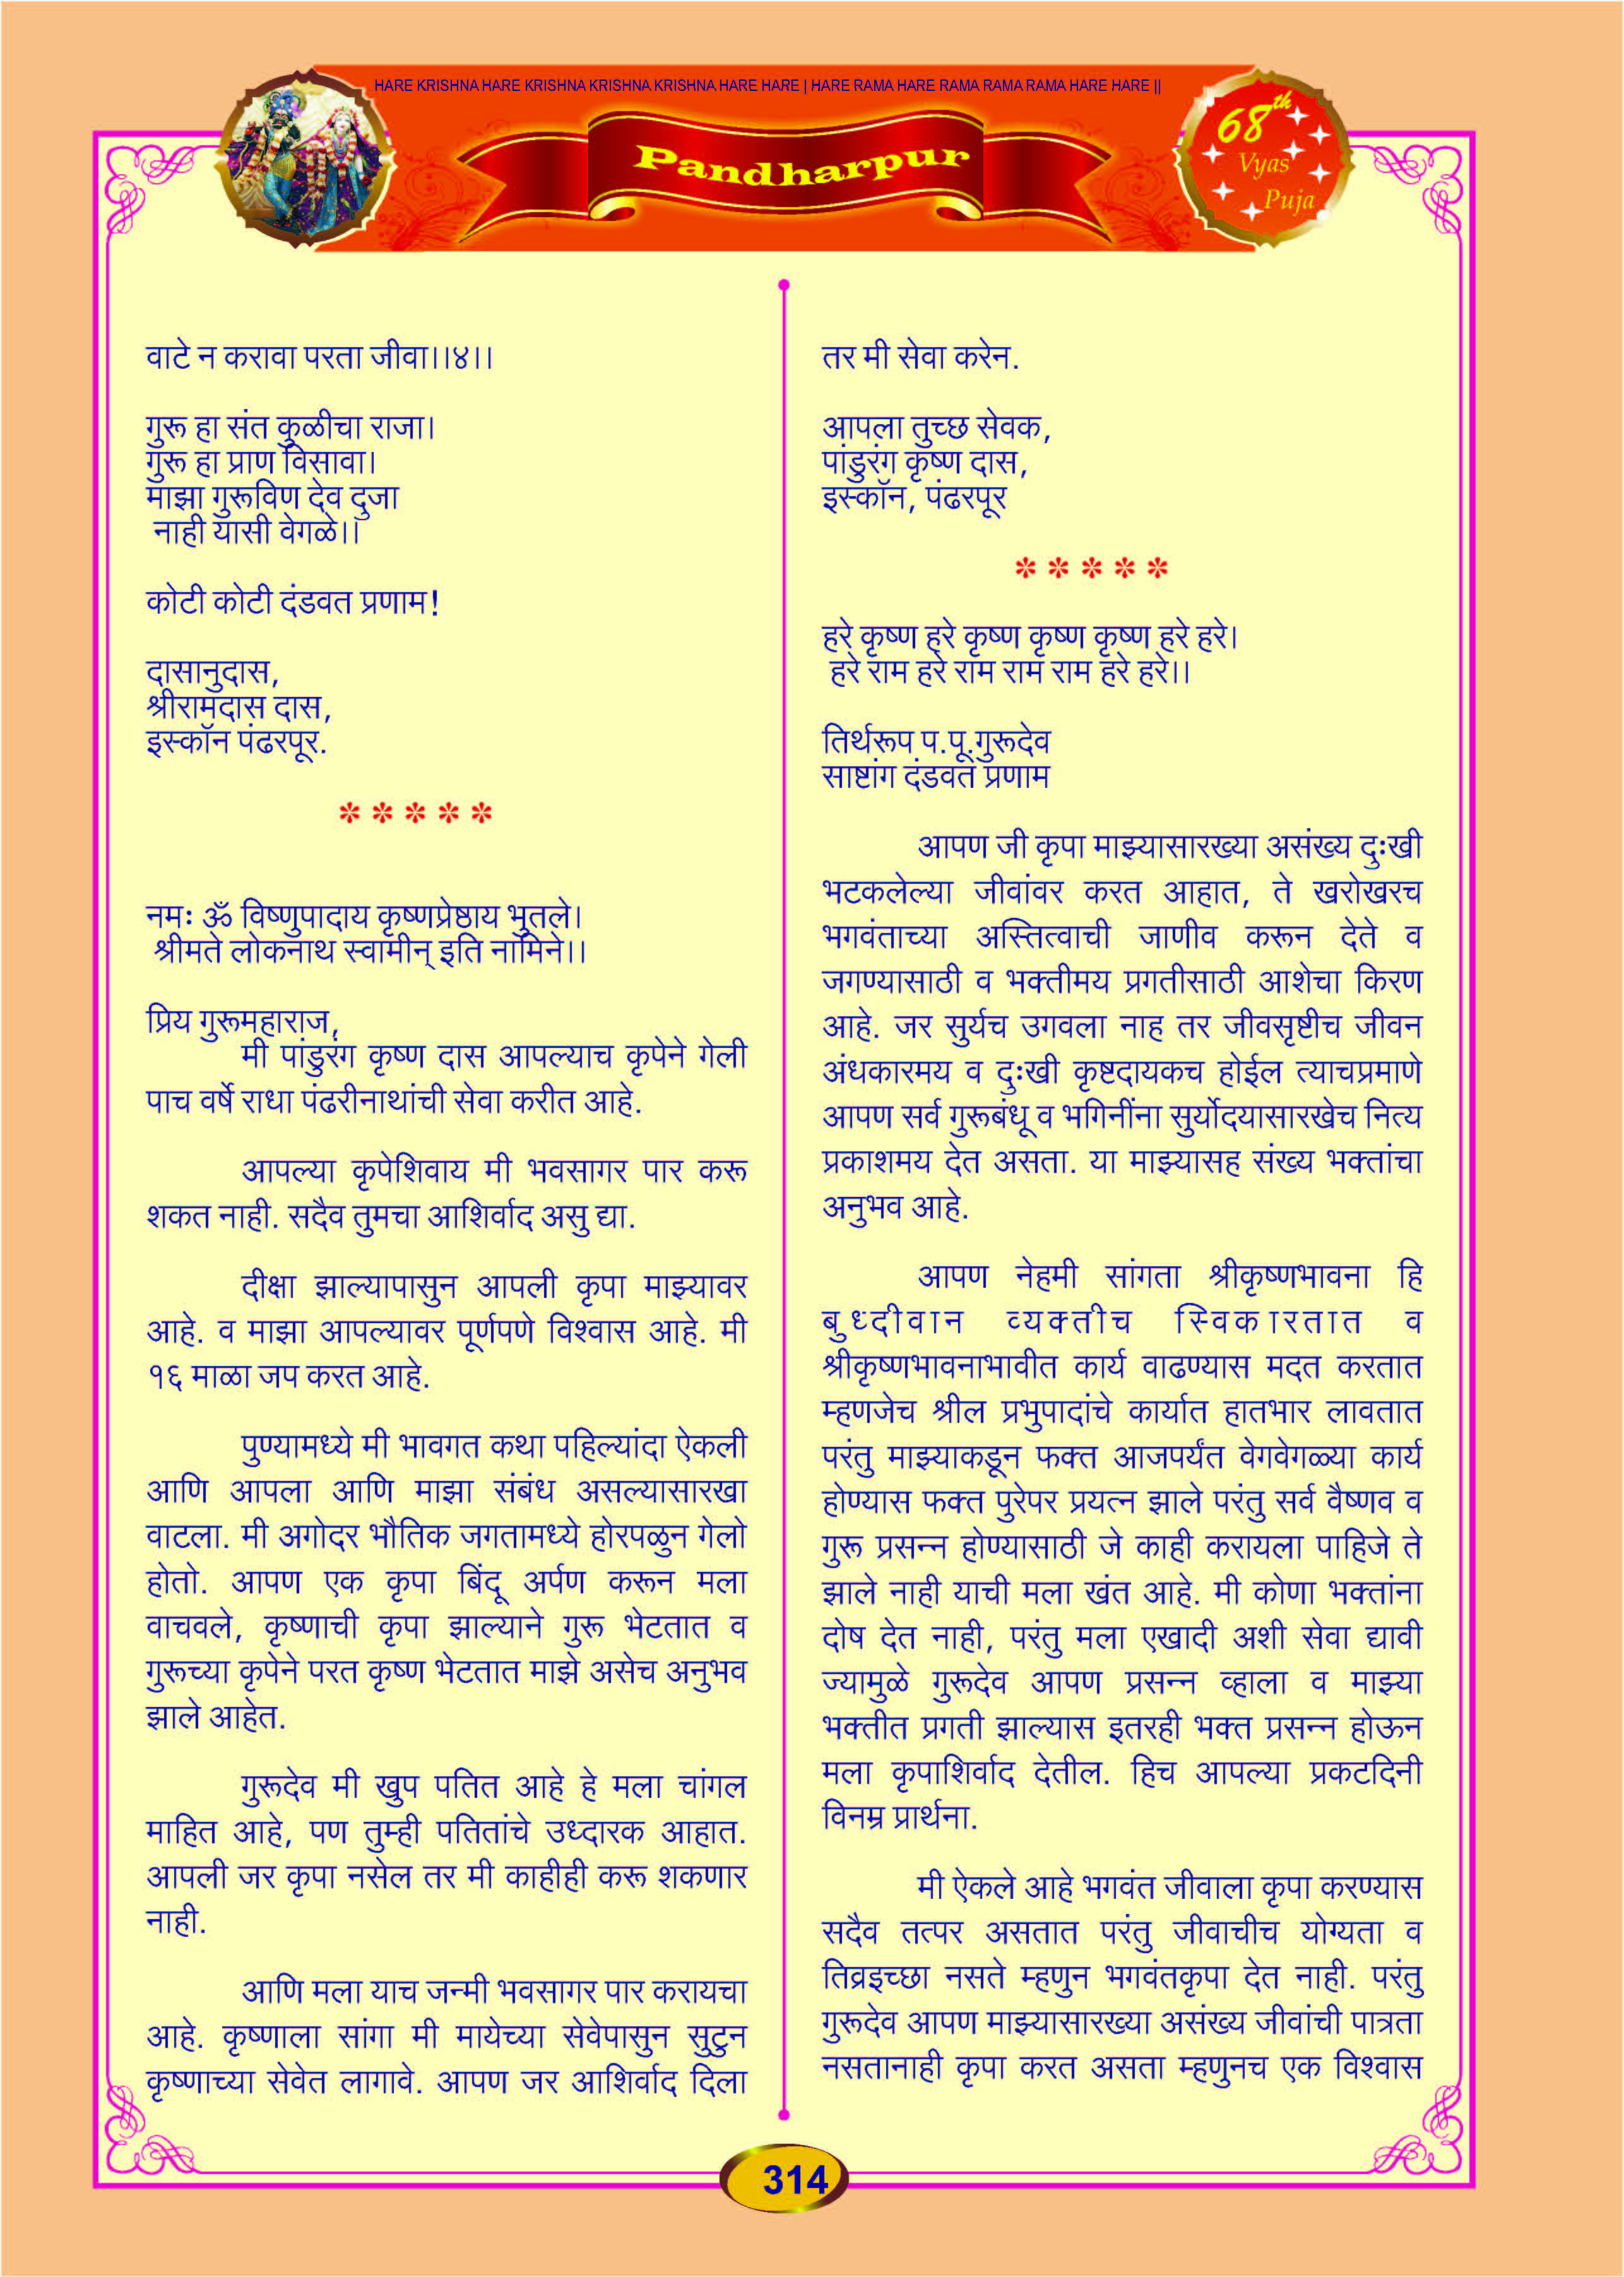 HARE KRISHNA HARE KRISHNA KRISHNA KRISHNA HARE HARE | HARE RAMA HARE RAMA RAMA RAMA HARE HARE ||
Pandharpur
68th
Vyas
Puja
वाटे न करावा परता जीवा।।४।।
गुरू हा संत कुळीचा राजा।
गुरू हा प्राण विसावा।
माझा गुरूविण देव दुजा
नाही यासी वेगळे।।
कोटी कोटी दंडवत प्रणाम!
दासानुदास,
श्रीरामदास दास,
इस्कॉन पंढरपूर.
*****
नमः ॐ विष्णुपादाय कृष्णप्रेष्ठाय भुतले।
श्रीमते लोकनाथ स्वामीन् इति नामिने।।
प्रिय गुरूमहाराज,
मी पांडुरंग कृष्ण दास आपल्याच कृपेने गेली
पाच वर्षे राधा पंढरीनाथांची सेवा करीत आहे.
आपल्या कृपेशिवाय मी भवसागर पार करू
शकत नाही. सदैव तुमचा आशिर्वाद असु द्या.
दीक्षा झाल्यापासुन आपली कृपा माझ्यावर
आहे. व माझा आपल्यावर पूर्णपणे विश्वास आहे. मी
१६ माळा जप करत आहे.
पुण्यामध्ये मी भावगत कथा पहिल्यांदा ऐकली
आणि आपला आणि माझा संबंध असल्यासारखा
वाटला. मी अगोदर भौतिक जगतामध्ये होरपळुन गेलो
होतो. आपण एक कृपा बिंदू अर्पण करून मला
वाचवले, कृष्णाची कृपा झाल्याने गुरू भेटतात व
गुरूच्या कृपेने परत कृष्ण भेटतात माझे असेच अनुभव
झाले आहेत.
गुरूदेव मी खुप पतित आहे हे मला चांगल
माहित आहे, पण तुम्ही पतितांचे उध्दारक आहात.
आपली जर कृपा नसेल तर मी काहीही करू शकणार
नाही.
आणि मला याच जन्मी भवसागर पार करायचा
आहे. कृष्णाला सांगा मी मायेच्या सेवेपासुन सुटुन
कृष्णाच्या सेवेत लागावे. आपण जर आशिर्वाद दिला
तर मी सेवा करेन.
आपला तुच्छ सेवक,
पांडुरंग कृष्ण दास,
इस्कॉन, पंढरपूर
*****
हरे कृष्ण हरे कृष्ण कृष्ण कृष्ण हरे हरे।
हरे राम हरे राम राम राम हरे हरे।।
तिर्थरूप प.पू.गुरूदेव
साष्टांग दंडवत प्रणाम
आपण जी कृपा माझ्यासारख्या असंख्य दुःखी
भटकलेल्या जीवांवर करत आहात, ते खरोखरच
भगवंताच्या अस्तित्वाची जाणीव करून देते व
जगण्यासाठी व भक्तीमय प्रगतीसाठी आशेचा किरण
आहे. जर सुर्यच उगवला नाह तर जीवसृष्टीच जीवन
अंधकारमय व दुःखी कृष्टदायकच होईल त्याचप्रमाणे
आपण सर्व गुरूबंधू व भगिनींना सुर्योदयासारखेच नित्य
प्रकाशमय देत असता. या माझ्यासह संख्य भक्तांचा
अनुभव आहे.
आपण नेहमी सांगता श्रीकृष्णभावना हि
बुध्दीवान व्यक्तीच स्विकारतात व
श्रीकृष्णभावनाभावीत कार्य वाढण्यास मदत करतात
म्हणजेच श्रील प्रभुपादांचे कार्यात हातभार लावतात
परंतु माझ्याकडून फक्त आजपर्यंत वेगवेगळ्या कार्य
होण्यास फक्त पुरेपर प्रयत्न झाले परंतु सर्व वैष्णव व
गुरू प्रसन्न होण्यासाठी जे काही करायला पाहिजे ते
झाले नाही याची मला खंत आहे. मी कोणा भक्तांना
दोष देत नाही, परंतु मला एखादी अशी सेवा द्यावी
ज्यामुळे गुरूदेव आपण प्रसन्न व्हाला व माझ्या
भक्तीत प्रगती झाल्यास इतरही भक्त प्रसन्न होऊन
मला कृपाशिर्वाद देतील. हिच आपल्या प्रकटदिनी
विनम्र प्रार्थना.
मी ऐकले आहे भगवंत जीवाला कृपा करण्यास
सदैव तत्पर असतात परंतु जीवाचीच योग्यता व
तिव्रइच्छा नसते म्हणुन भगवंतकृपा देत नाही. परंतु
गुरूदेव आपण माझ्यासारख्या असंख्य जीवांची पात्रता
नसतानाही कृपा करत असता म्हणुनच एक विश्वास
314